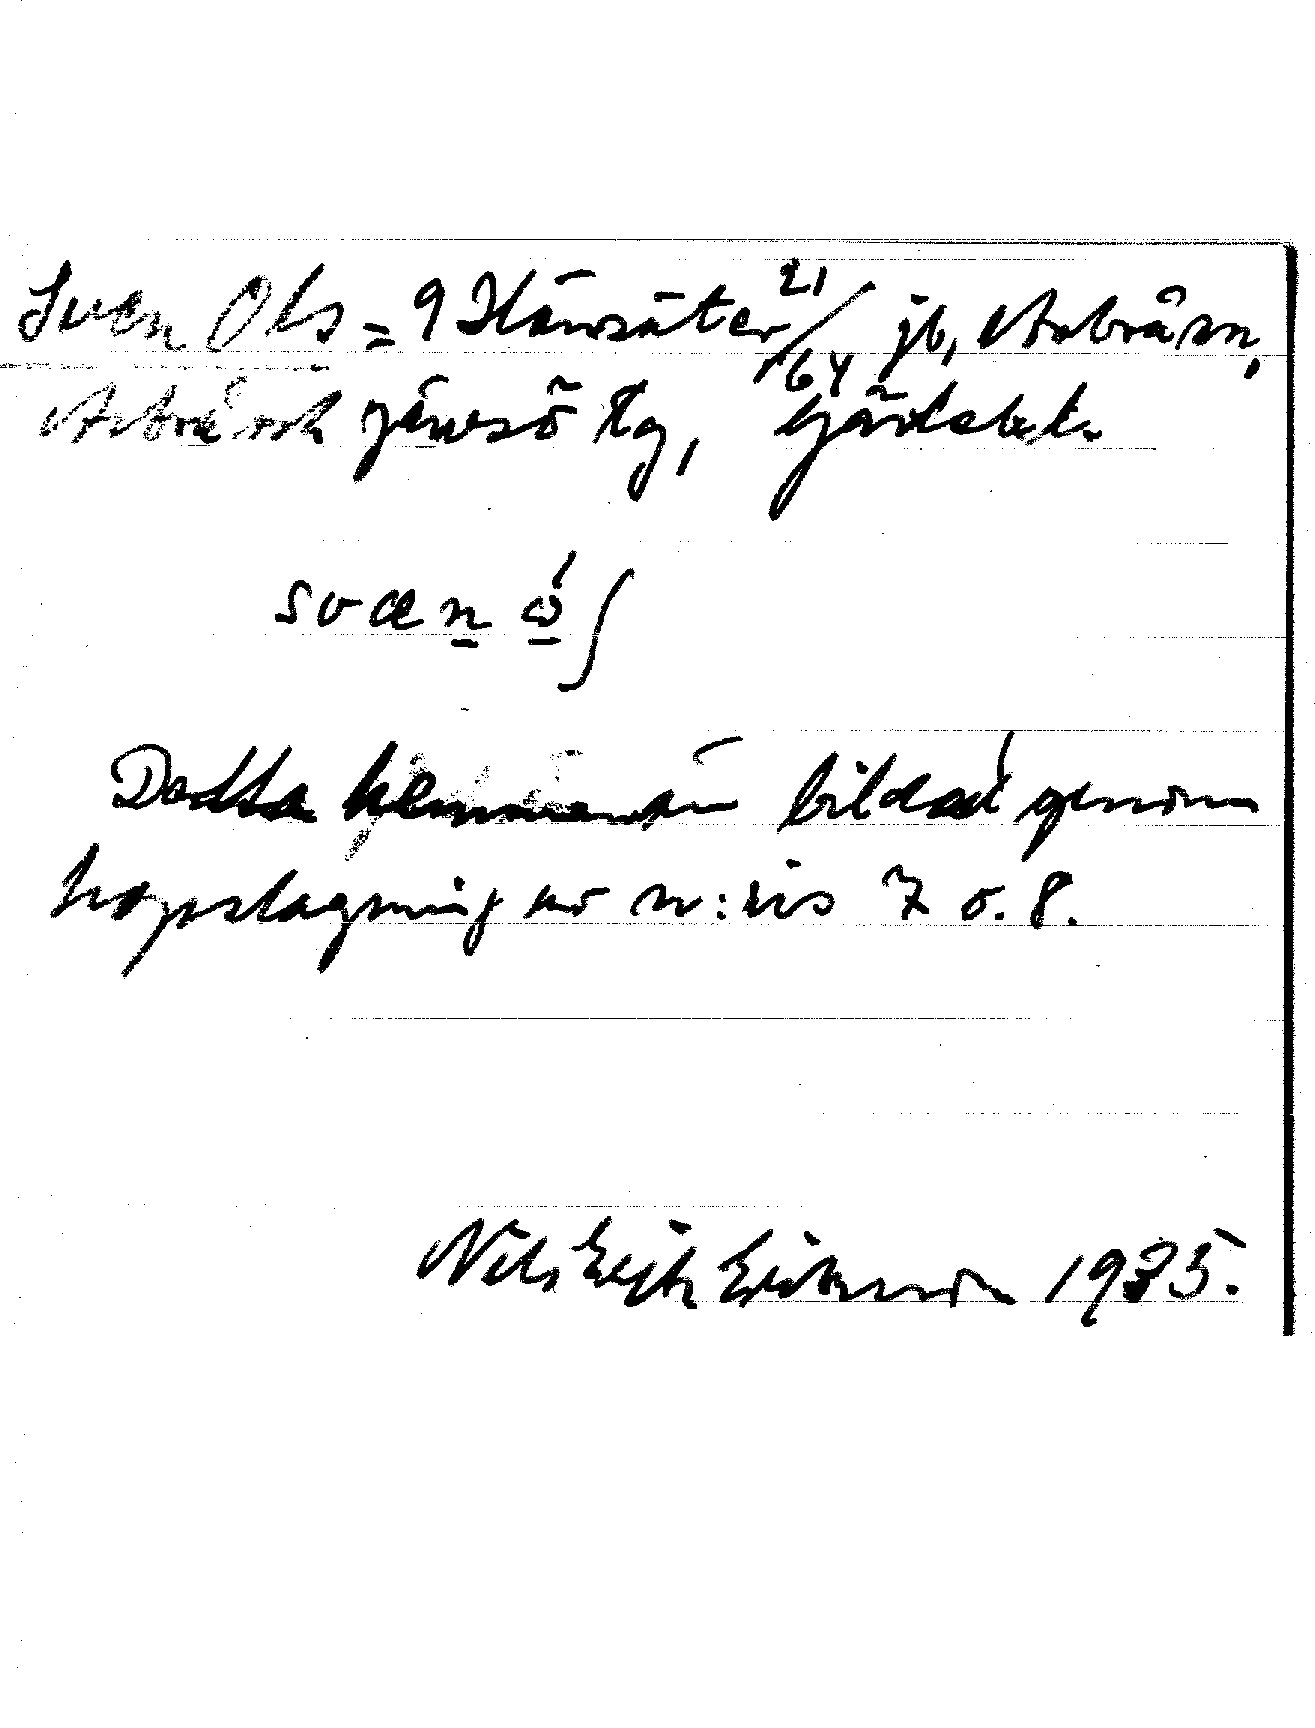 Sven Ols = 9 Hänsäter 21/64 jb, Arbrå sn,
Arbrå och Järvsö tg, Gävlebl.
svæn ώ∫
Detta hemman är bildad genom
hopslagning av n:ris 7 o. 8.
Nils Erik Eriksson 1935.